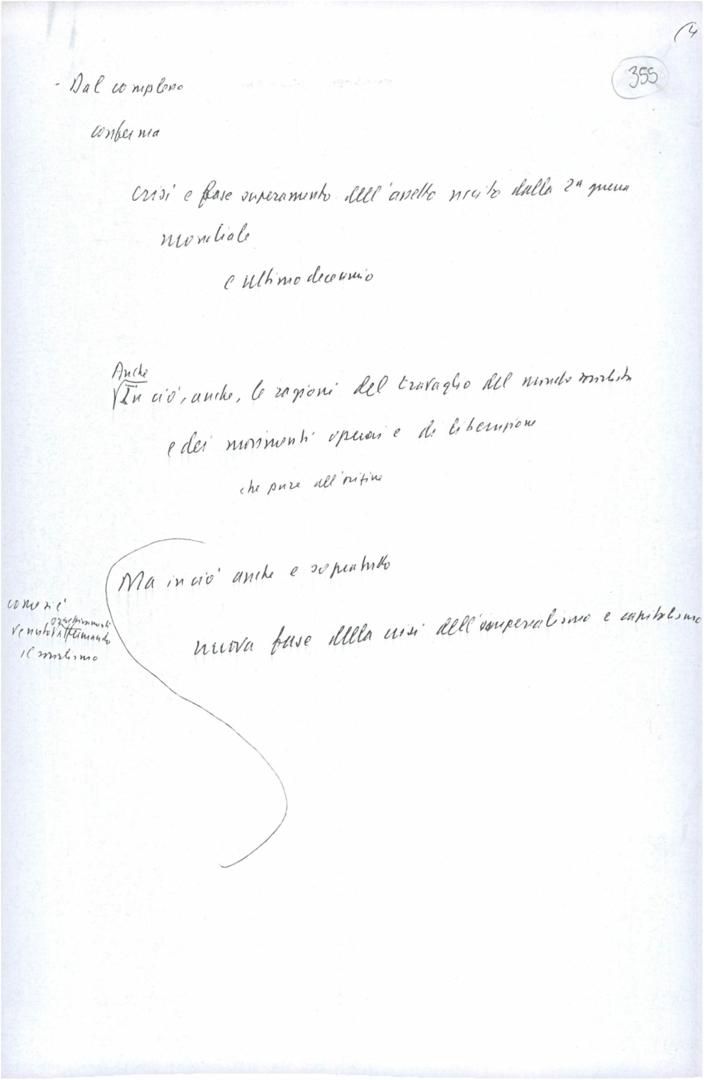 (4
355
- Dal complesso
conferma
crisi e fase superamento dell'assetto uscito dalla 2ª guerra
mondiale
e ultimo decennio
Anche
In ciò, anche, le ragioni del travaglio del mondo socialista
e dei movimenti operai e di liberazione
che pure all'
Ma in ciò anche e sopratutto
nuova fase della crisi dell'imperialismo e capitalismo
come si è
venuto
il socialismo